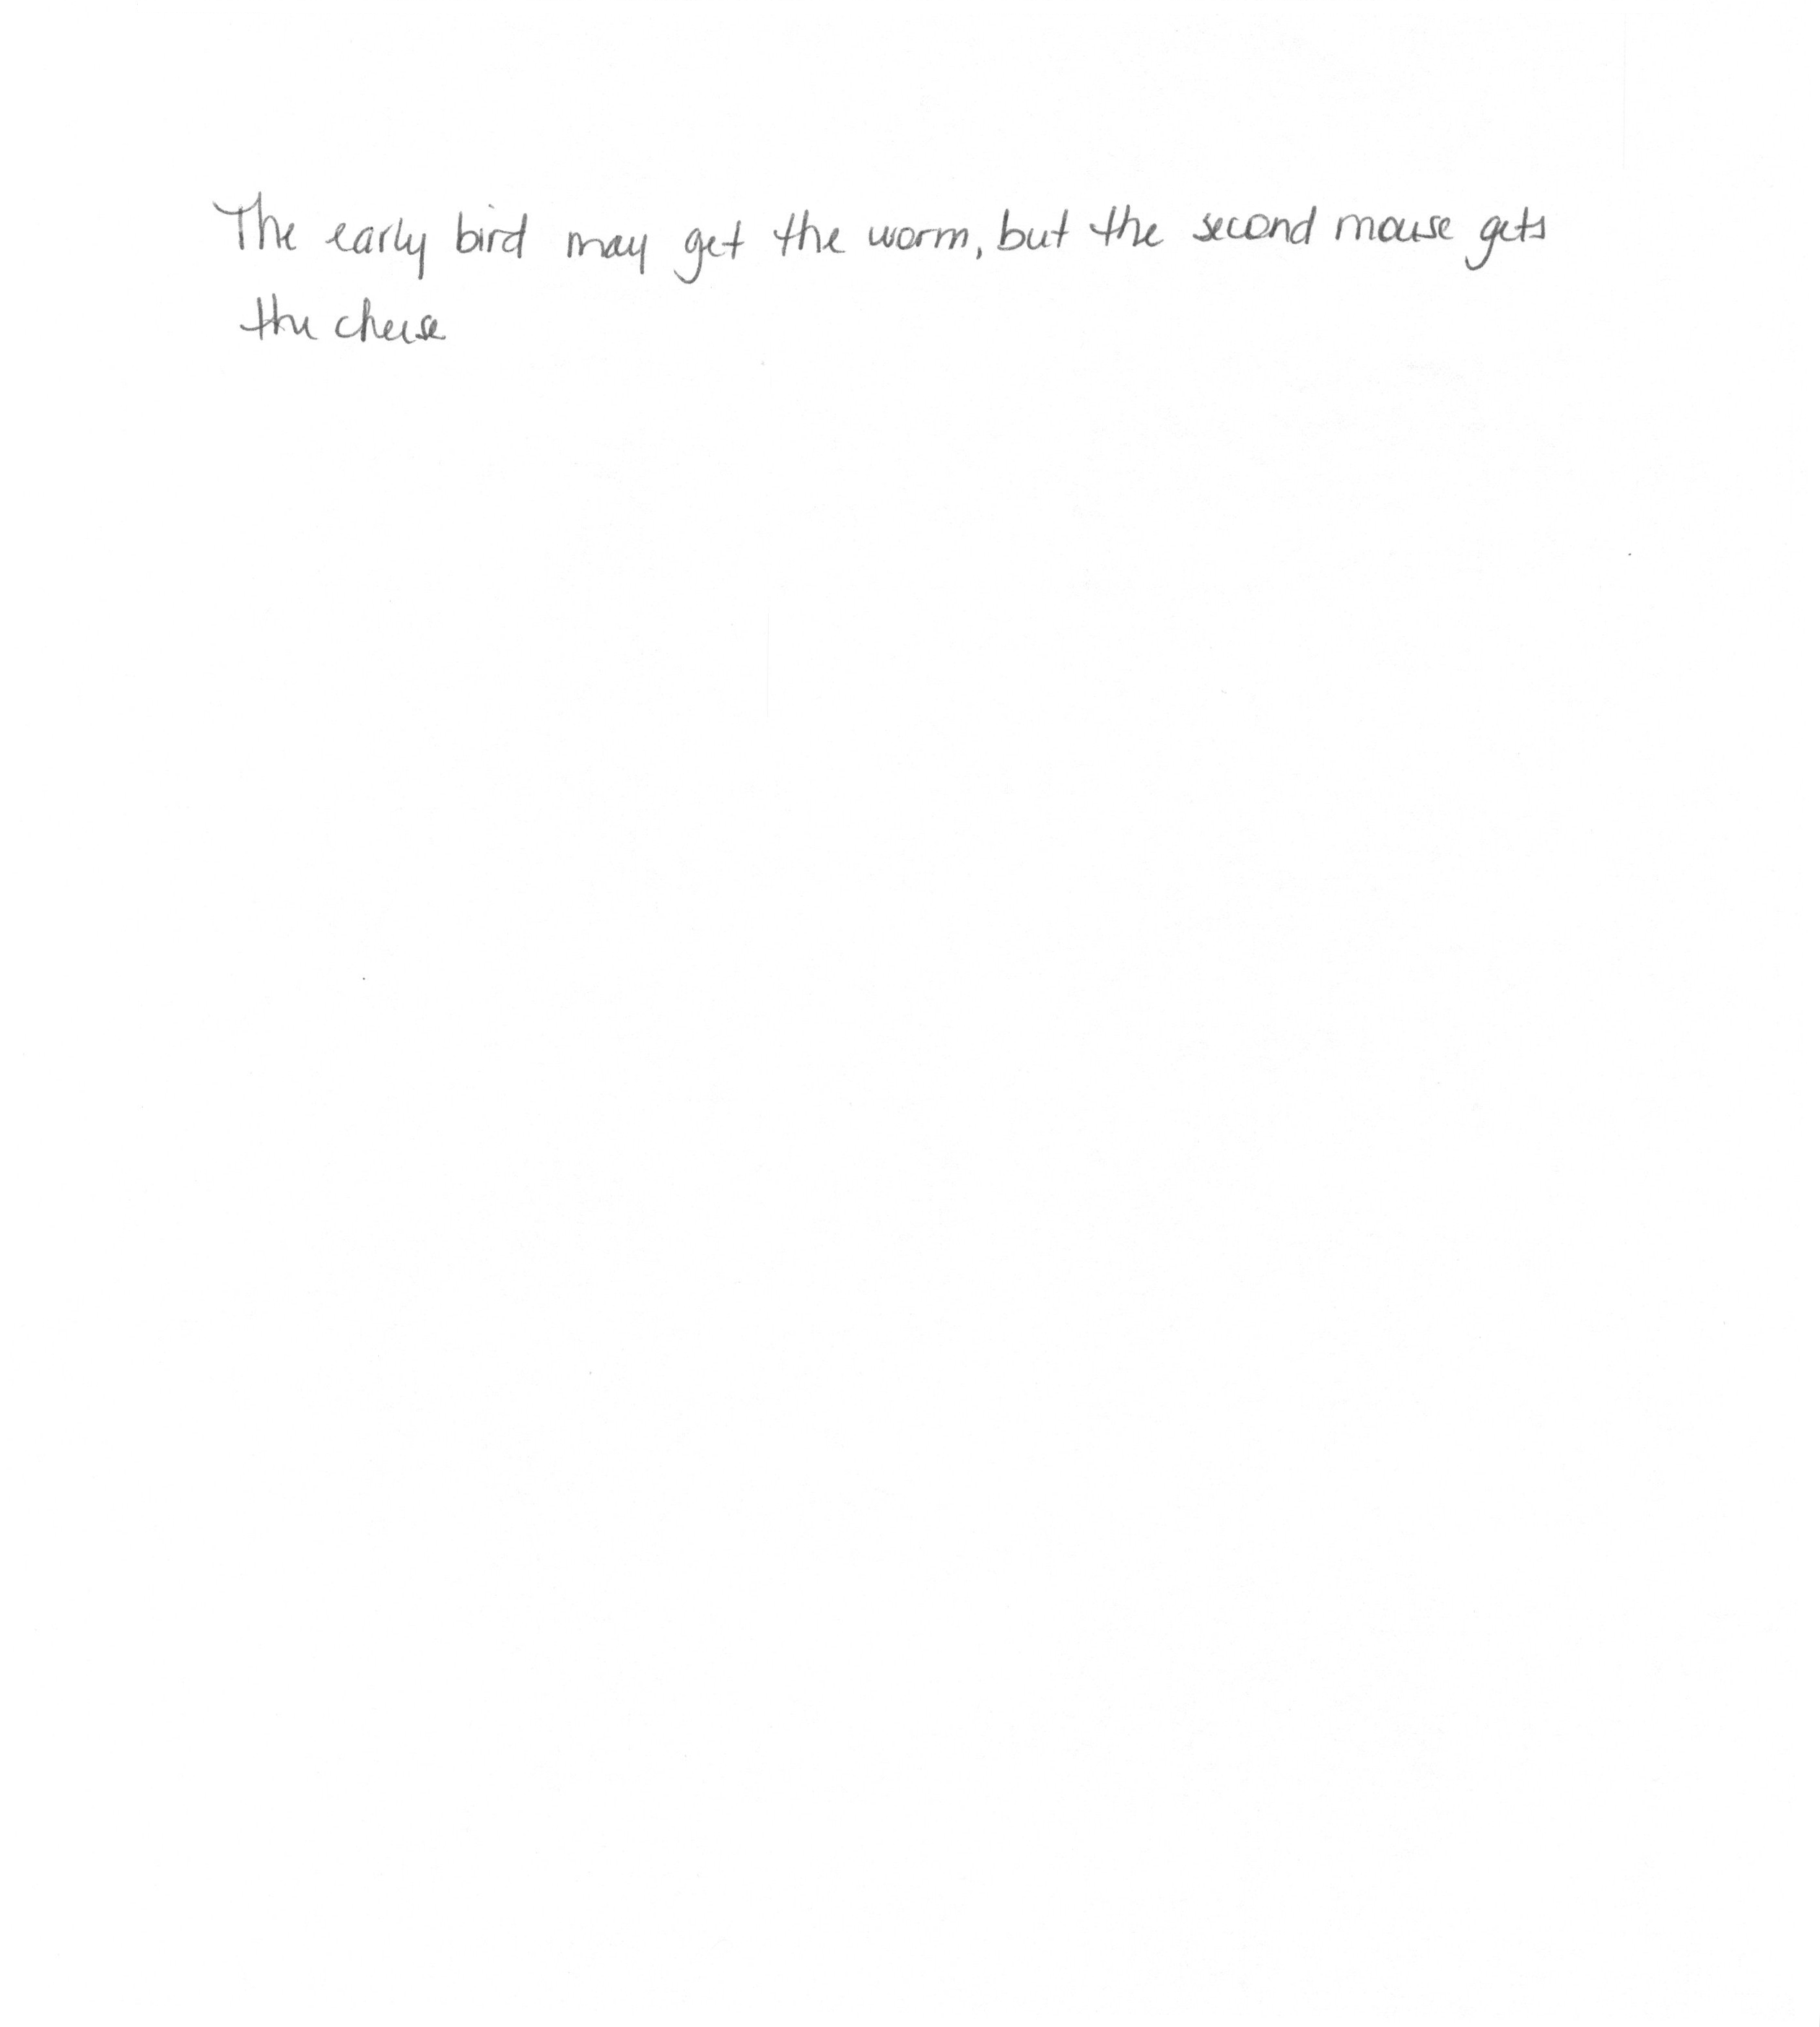 The early bird may get the worm, but the second mouse gets
the cheese